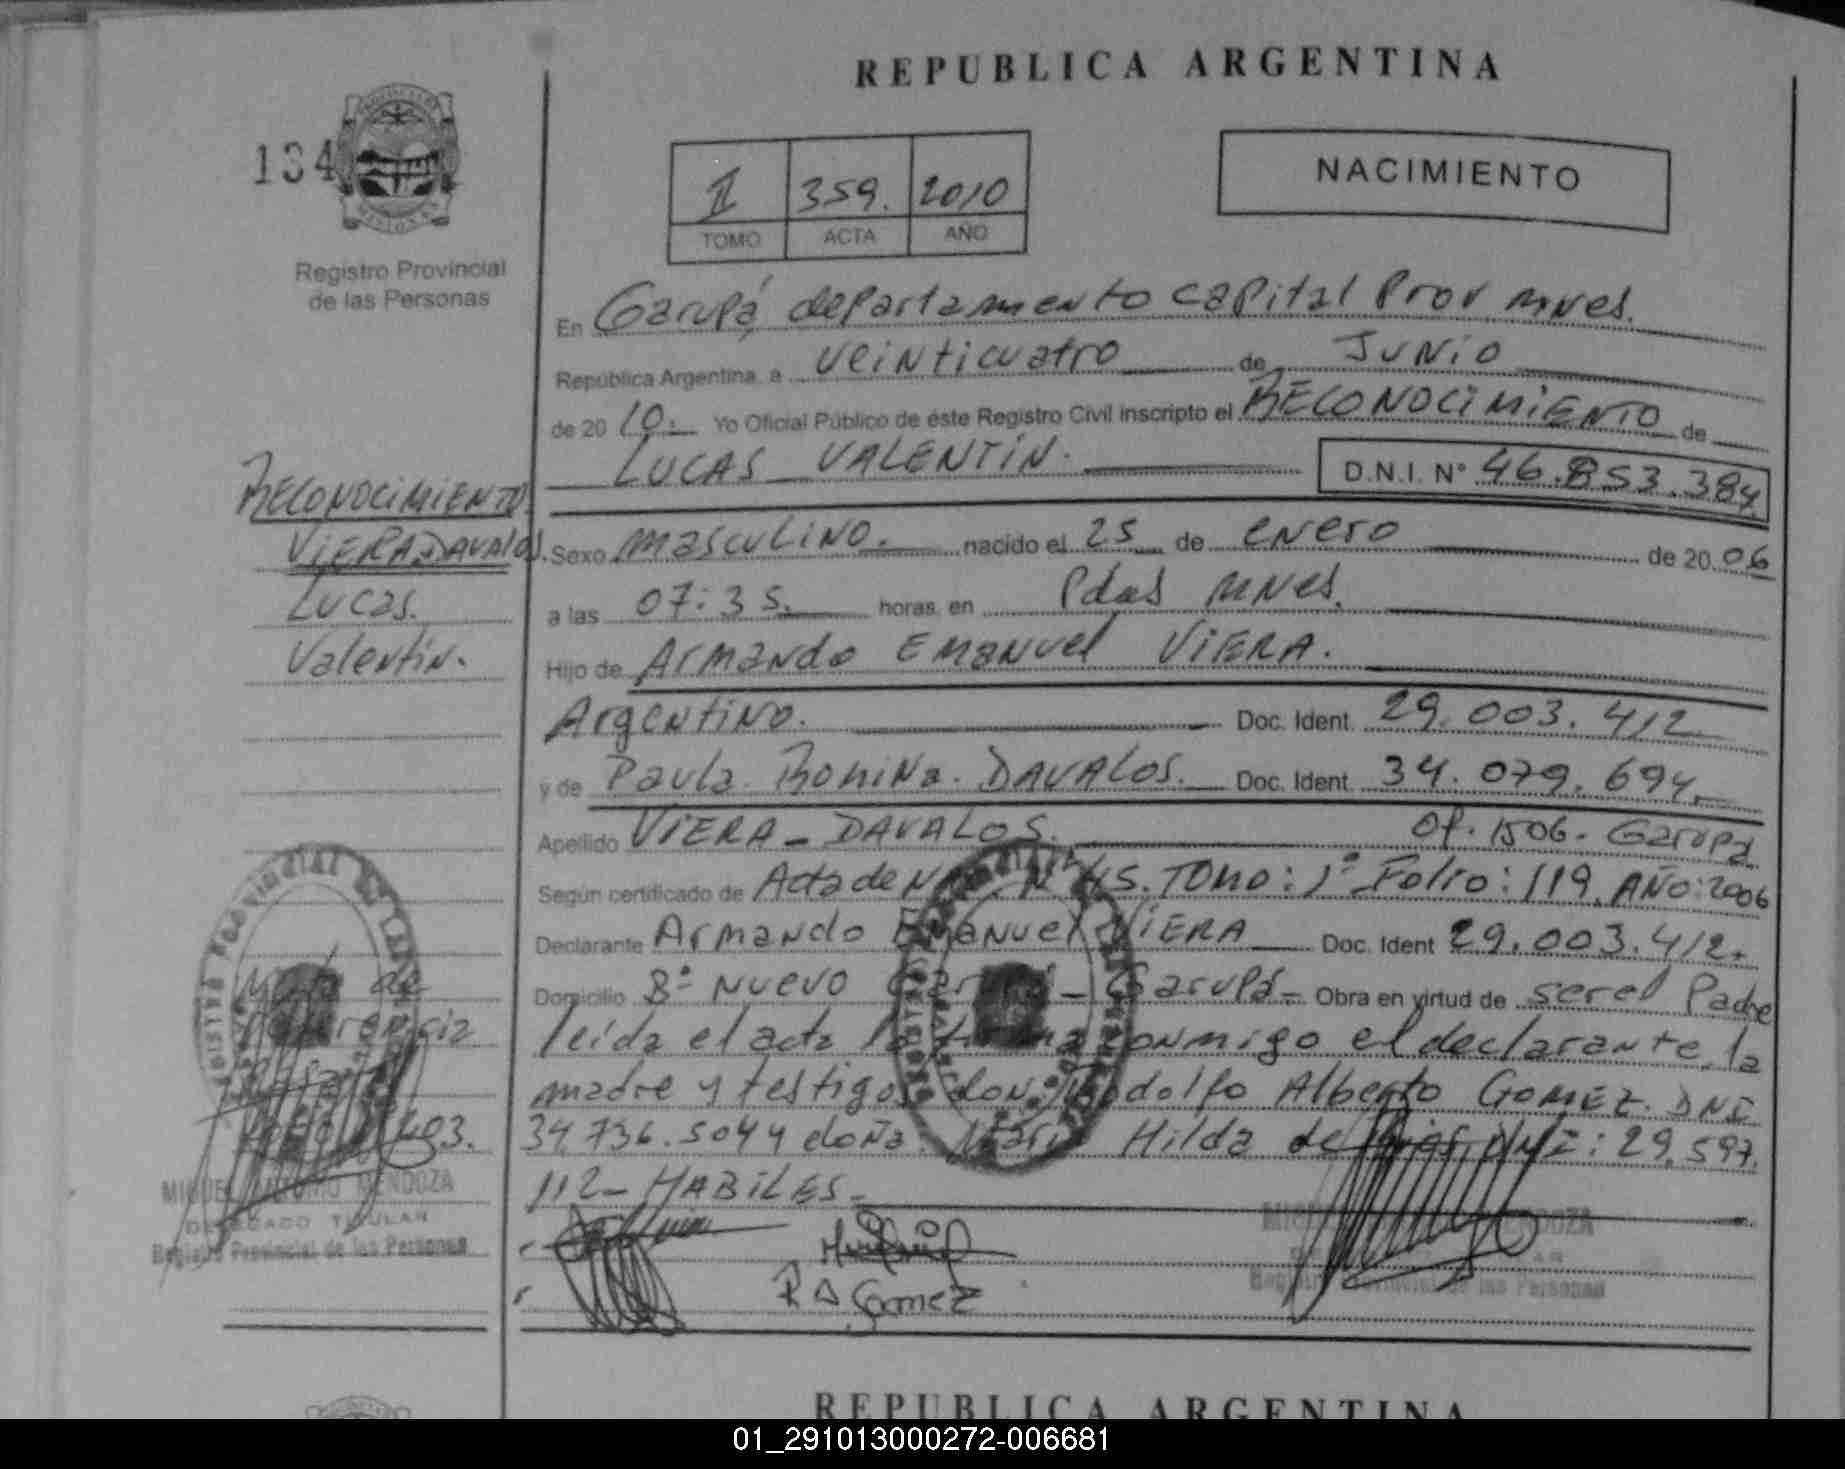 REPUBLICA ARGENTINA
134
MISIONES
Registro Provincial
de las Personas
II 359. 2010
TOMO ACTA AÑO
NACIMIENTO
En Garupá departamento capital Prov mnes.
República Argentina, a veinticuatro de Junio
de 2010. Yo Oficial Público de éste Registro Civil inscripto el RECONOCIMIENTO de
LUCAS VALENTIN. D.N.I. N° 46.853.384
Sexo masculino. nacido el 25 de enero de 2006
a las 07:35. horas, en Pdas mnes.
Hijo de Armando Emanuel VIERA.
Argentino. Doc. Ident. 29.003.412
y de Paula Romina DAVALOS. Doc. Ident. 34.079.694
Apellido VIERA - DAVALOS. Of. 1506. Garupá
Según certificado de Acta de 45. TOMO: 1° Folio: 119. AÑO: 2006
Declarante Armando Emanuel VIERA Doc. Ident 29.003.412.
Domicilio B° NUEVO Garupá - Garupá - Obra en virtud de ser el Padre
leída el acta la firma conmigo el declarante, la
madre y testigos don Rodolfo Alberto GOMEZ. DNI
34.736.504 y doña: María Hilda de DNI: 29.597.
112 - HABILES -
R A Gomez
RECONOCIMIENTO
VIERA DAVALOS.
Lucas.
Valentín.
Nota de
Referencia
403.
MIGUEL ANTONIO MENDOZA
DELEGADO TITULAR
Registro Provincial de las Personas
MIGUEL ANTONIO MENDOZA
Registro Provincial de las Personas
REPUBLICA ARGENTINA
01_291013000272-006681